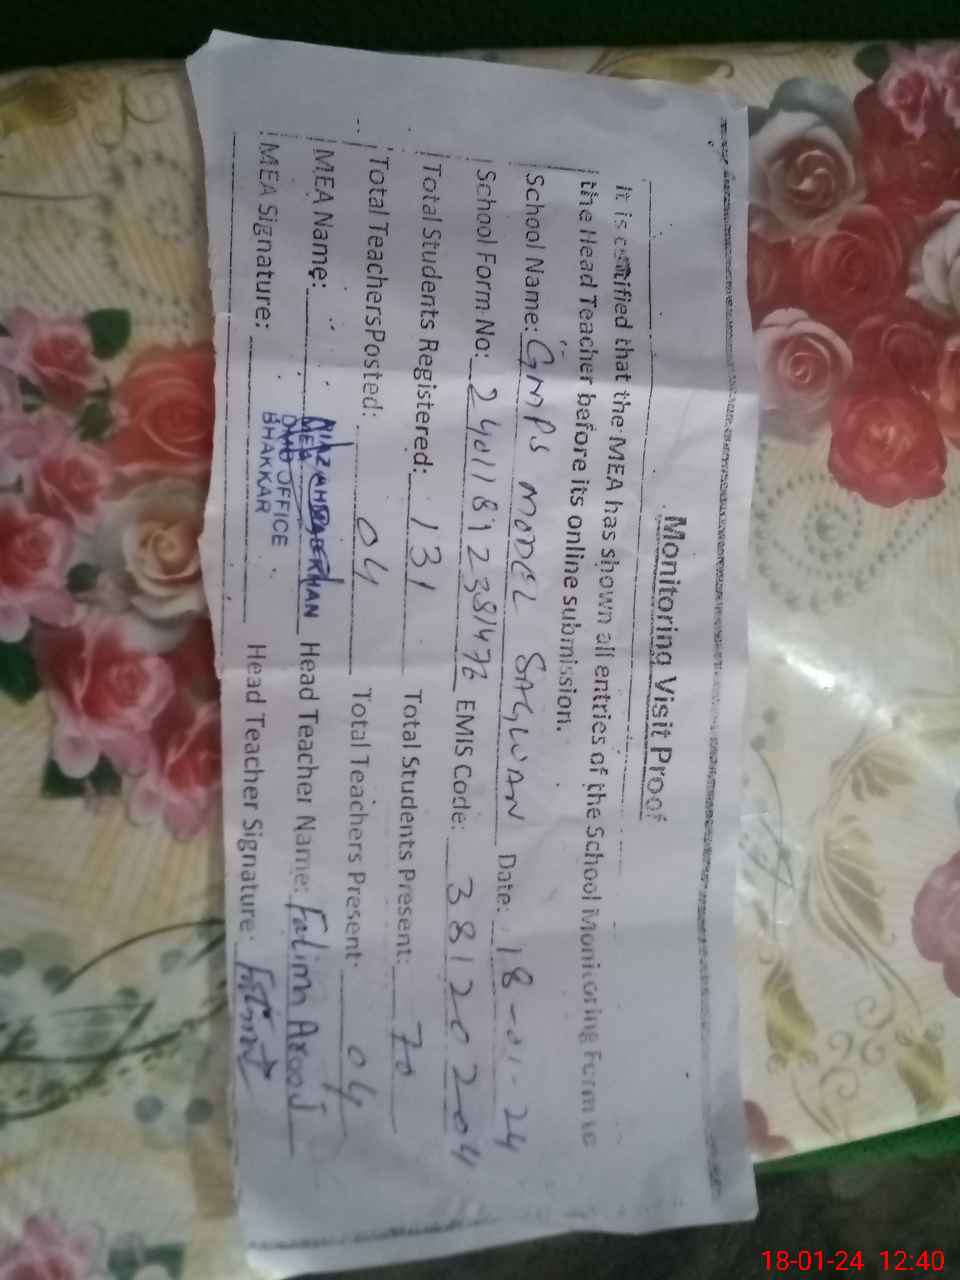 Monitoring Visit Proof
It is certified that the MEA has shown all entries of the School Monitoring Form to
the Head Teacher before its online submission.
School Name: GMPS MODEL SAGWAN Date: 18-01-24
School Form No: EMIS Code: 38120204
Total Students Registered: 131 Total Students Present: 70
Total Teachers Posted: 04 Total Teachers Present: 04
MEA Name: RIAZ AHMAD KHAN Head Teacher Name: Fatima Arooj
MEA
DMO OFFICE
BHAKKAR
MEA Signature: Head Teacher Signature:
18-01-24 12:40